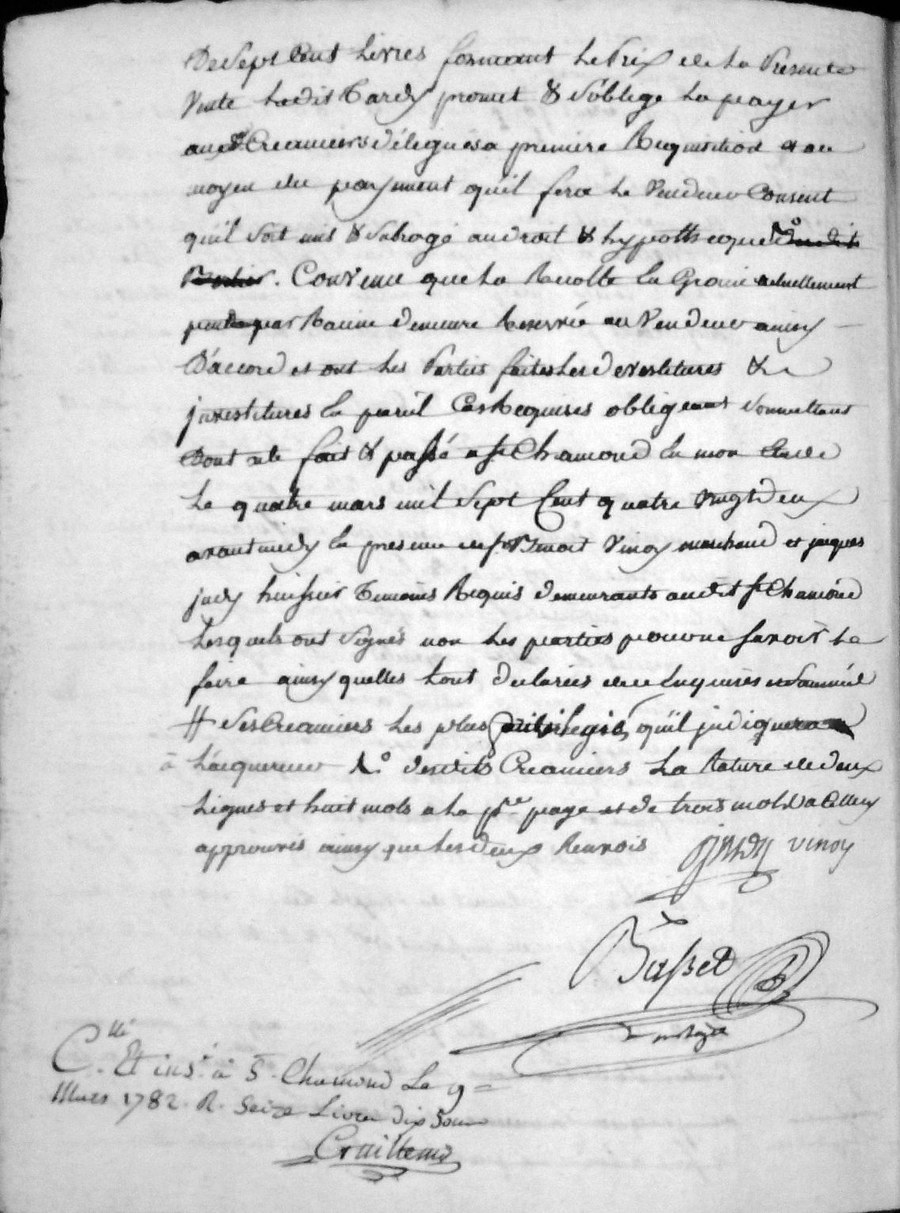 De Sept Cent Livres formant Le Prix de La Presente
Vente Ledit Tardy promet & S'oblege La payer
aux Creanciers délegués a premiere Requisition et au
moyen du payment qu'il fera Le Vendeur Consent
qu'il Soit mis & Subrogé au droit & hypotheque desdits
. Convenu que La Recolte En Graine actuellement
pendante par Racine demeure Reservée au Vendeur ainsy
D'accord et ont Les Parties faites Les devestitures &
investitures En pareil Cas Requises obligeant Soumettant
Dont acte fait & passé a St Chamond En mon Etude
Le quatre mars mil Sept Cent quatre vingt deux
avant midy En presence de Sr Benoit Vinoy marchand et jacques
judy huissier Temoins Requis demeurants audit St Chamond
Lesquels ont Signés non Les parties pour ne Savoir Le
faire ainsy quelles L'ont declarées de ce Enquises et Sommées
# Ses Creanciers Les plus privilegiés qu'il indiquera
à Lacquereur Ro desdits Creanciers La Rature de deux
Lignes et huit mots a la pre page et de trois mots a Celle cy
approuvés ainsy que Les deux Renvois judy vinoy
Basset
notaire
Cllé Et insé à S. Chamond Le 9
Mars 1782. R. Seize Livres dix Sous